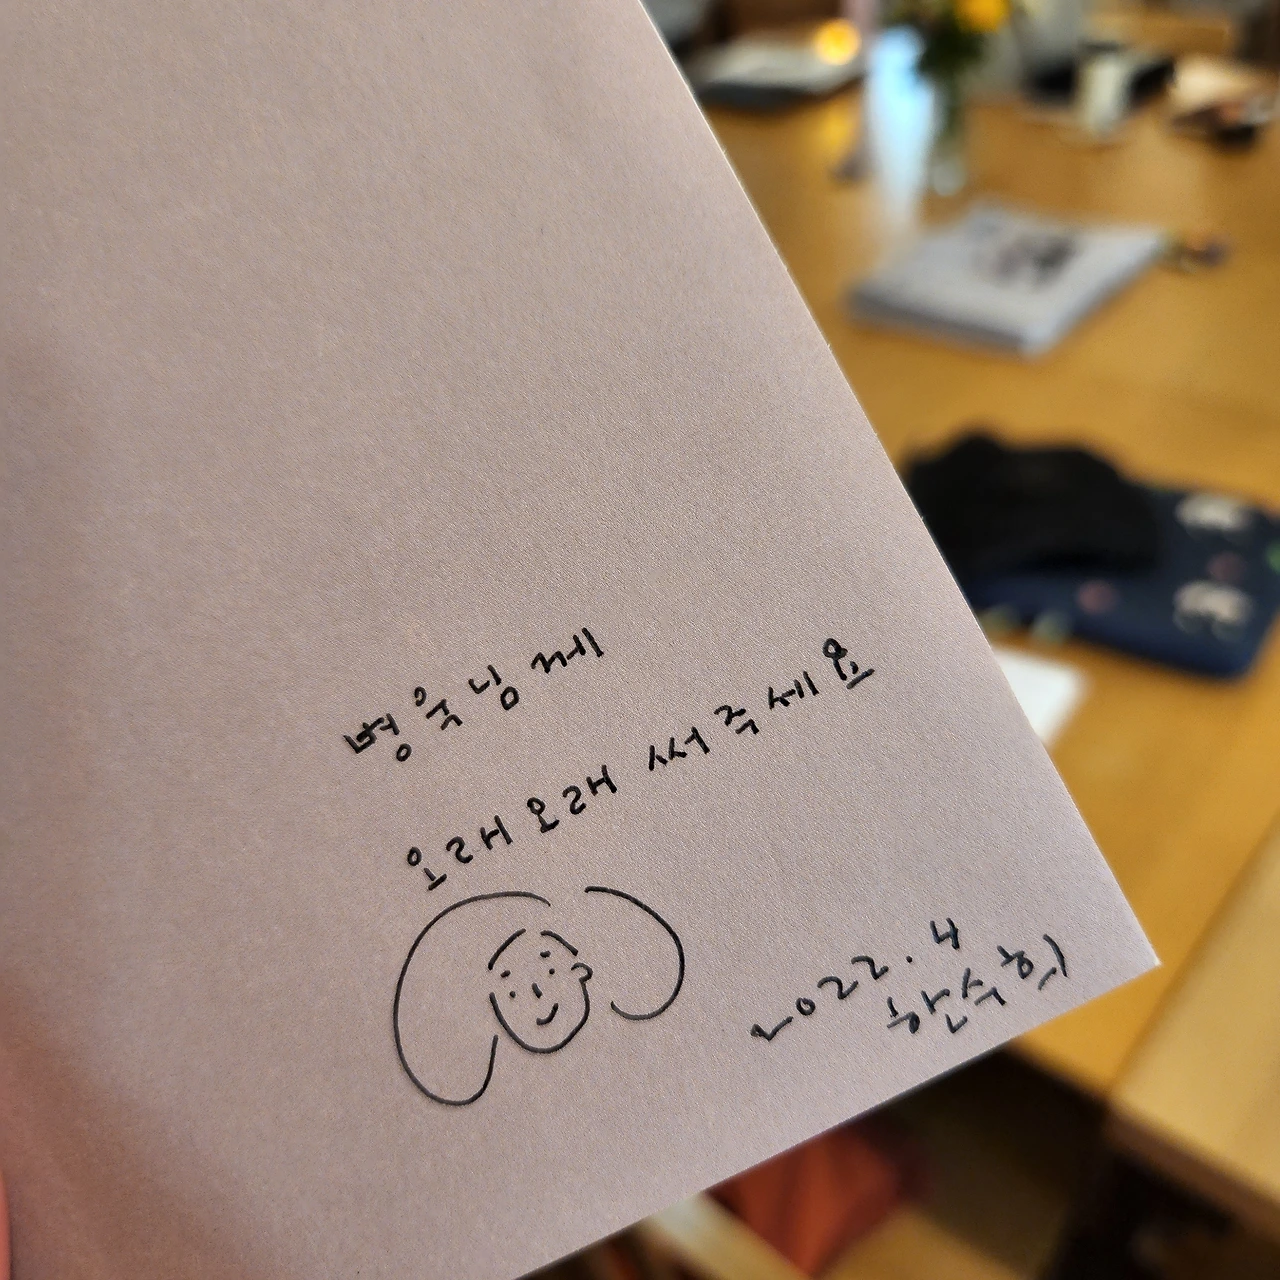 병욱님께
오래오래 써주세요
2022.4
한수희